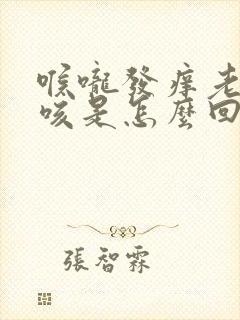 喉嚨發癢老
咳是怎麼回
張智霖